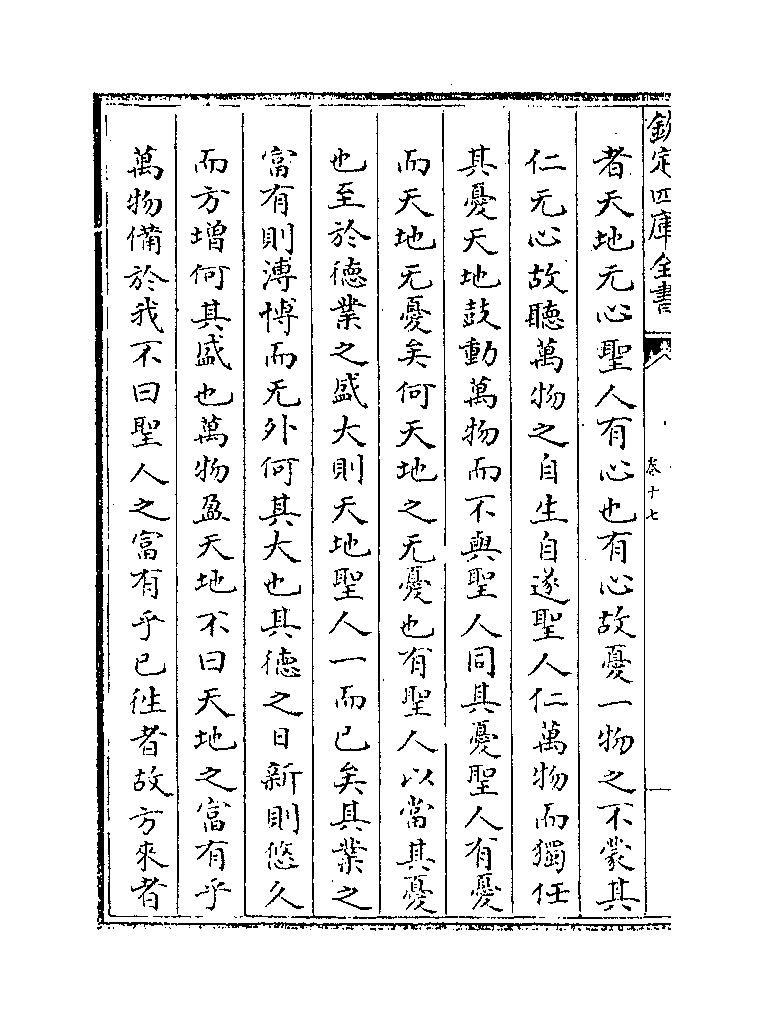 欽定四庫全書
卷十七
者天地无心聖人有心也有心故憂一物之不蒙其
仁无心故聽萬物之自生自遂聖人仁萬物而獨任
其憂天地鼓動萬物而不與聖人同其憂聖人有憂
而天地无憂矣何天地之无憂也有聖人以當其憂
也至於徳業之盛大則天地聖人一而已矣其業之
富有則溥博而无外何其大也其徳之日新則悠久
而方增何其盛也萬物盈天地不曰天地之富有乎
萬物備於我不曰聖人之富有乎已徃者故方來者